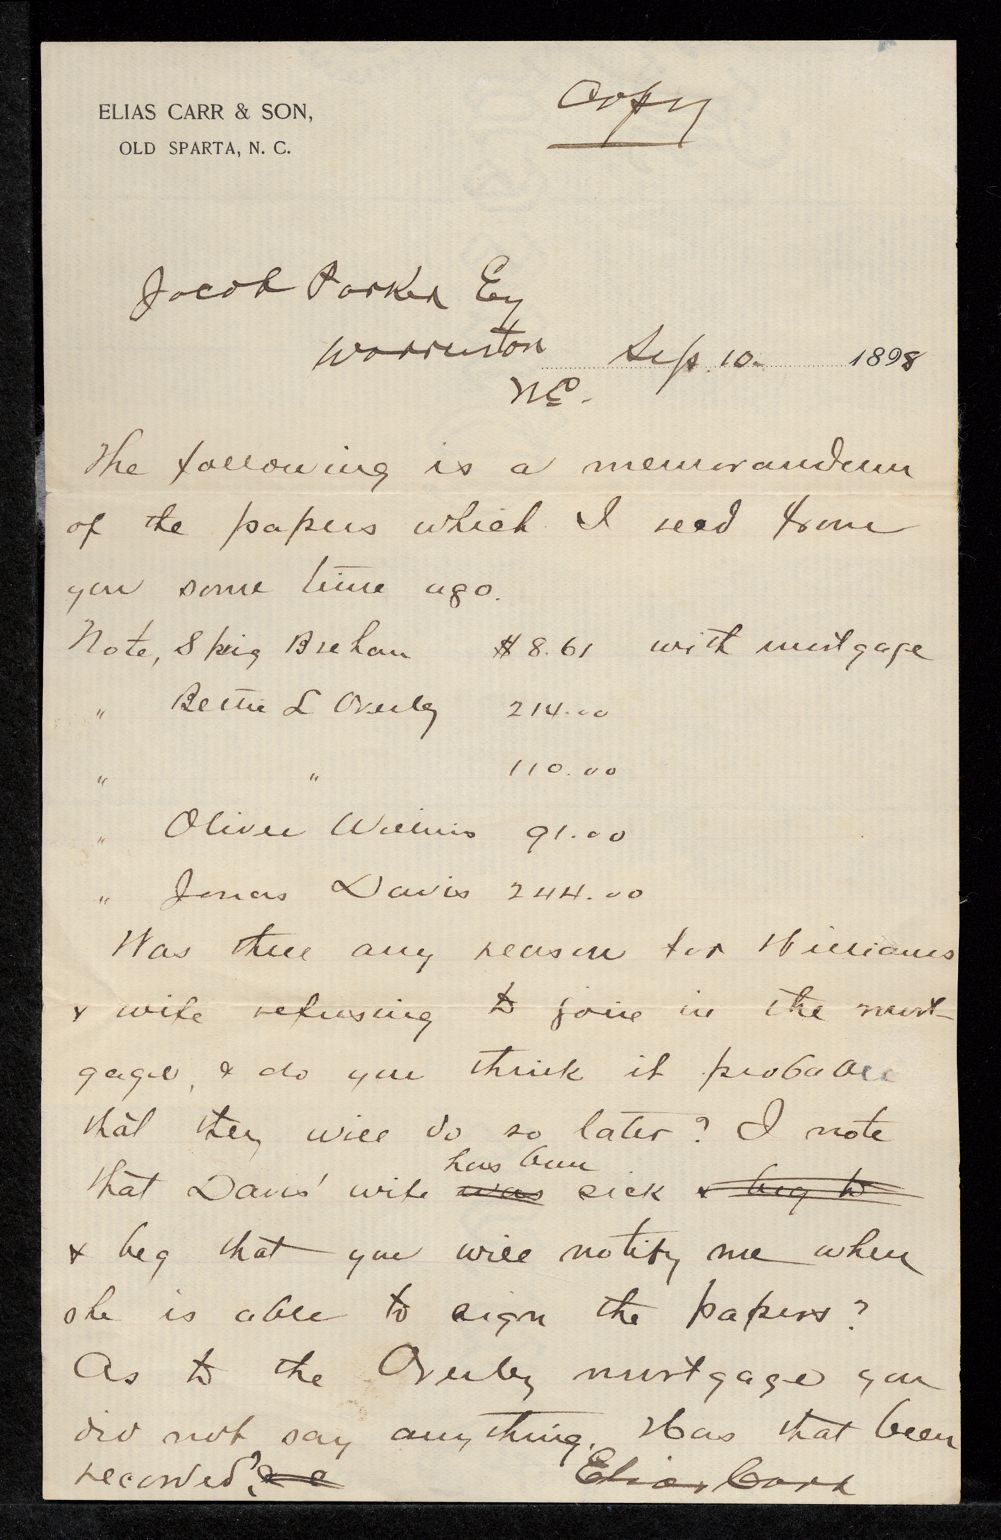 ELIAS CARR & SON,
OLD SPARTA, N. C.
Copy
Jacob Parker Esq
Warrenton Sep. 10. 1898
NC.
The following is a memorandum
of the papers which I recd from
you some time ago.
Note, Skig Breham $8.61 with mortgage
" Bettie L Overby 214.00
" " 110.00
" Oliver Williams 91.00
" Jonas Davis 244.00
Was there any reason for Williams
& wife refusing to join in the mort-
gage, & do you think it probable
that they will do so later? I note
has been
that Davis' wife was sick & beg to
& beg that you will notify me when
she is able to sign the papers?
As to the Overby mortgage you
did not say anything. Has that been
recorded?
Elias Carr